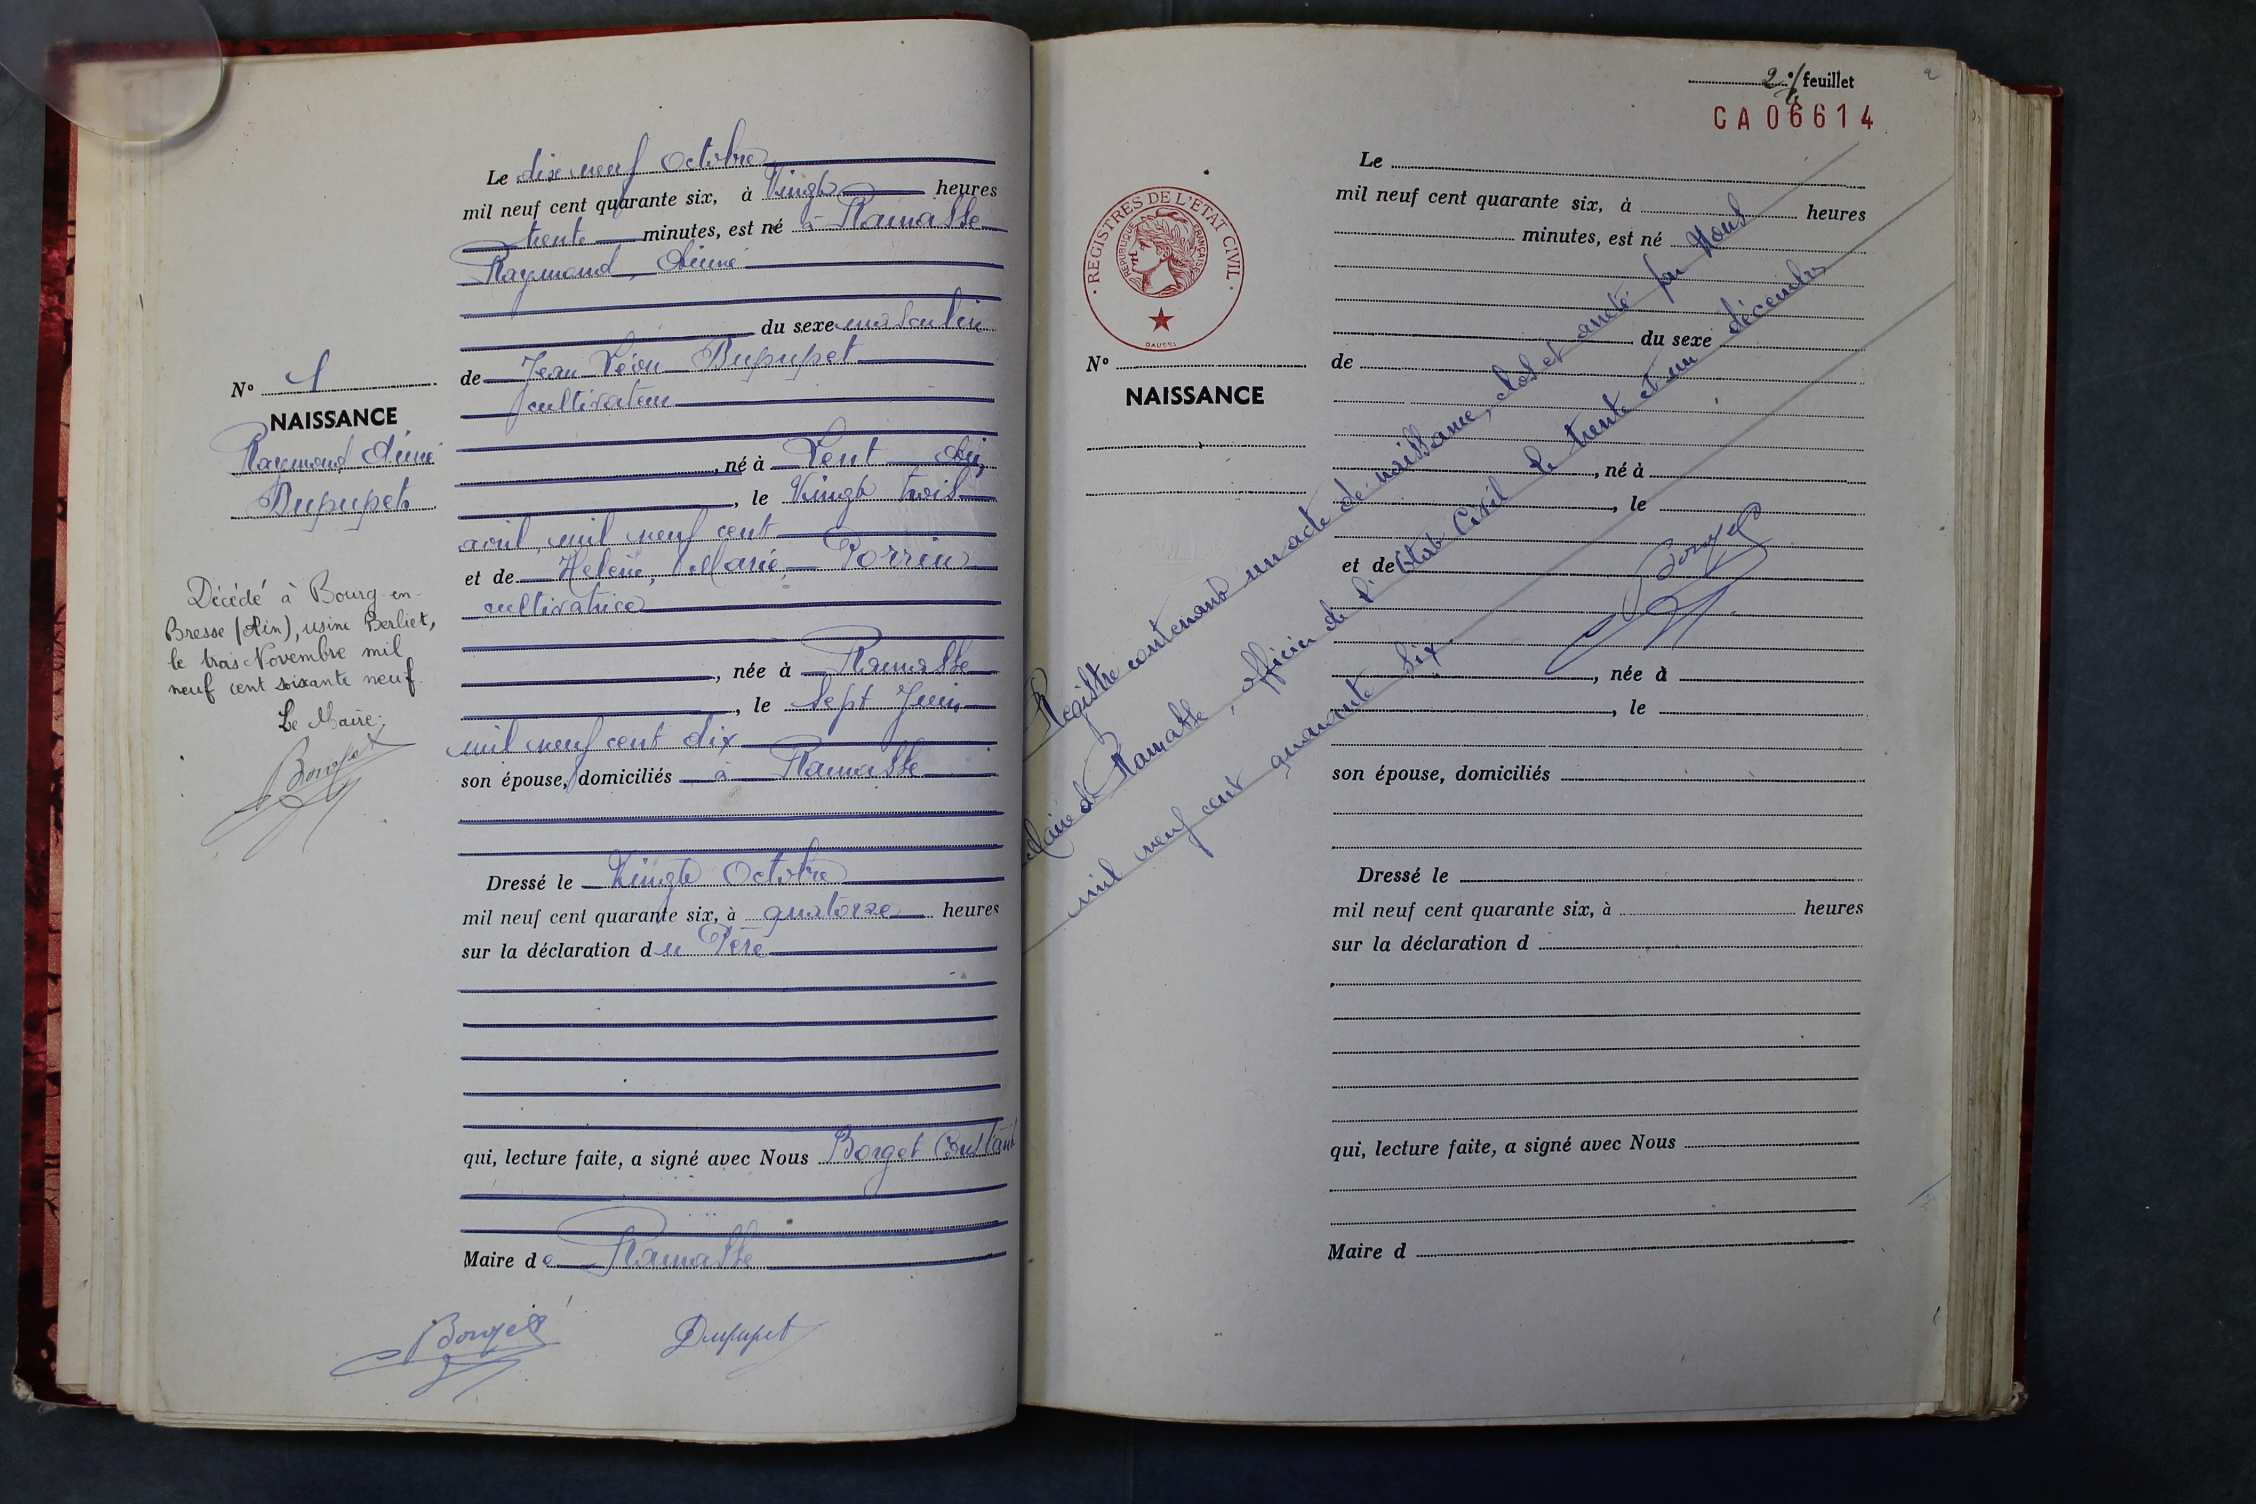 N° 1
NAISSANCE
Raymond Aimé
Dupupet
Décédé à Bourg-en-
Bresse (Ain), usine Berliet,
le trois Novembre mil
neuf cent soixante neuf.
Le Maire:
Borget
Le dix neuf Octobre
mil neuf cent quarante six, à Vingt heures
trente minutes, est né à Ramasse
Raymond, Aimé
du sexe masculin
de Jean Léon Dupupet
cultivateur
, né à Lent Ain
, le Vingt trois
avril, mil neuf cent
et de Hélène, Marie, Perrin
cultivatrice
, née à Ramasse
, le Sept Juin
mil neuf cent dix
son épouse, domiciliés à Ramasse
Dressé le Vingt Octobre
mil neuf cent quarante six, à quatorze heures
sur la déclaration du Père
qui, lecture faite, a signé avec Nous Borget Constant
Maire de Ramasse
Borget Dupupet
2 e/ feuillet
CA06614
REGISTRES DE L'ETAT CIVIL
REPUBLIQUE FRANÇAISE
N°
NAISSANCE
Le
mil neuf cent quarante six, à heures
minutes, est né
du sexe
de
, né à
, le
et de
, née à
, le
son épouse, domiciliés
Dressé le
mil neuf cent quarante six, à heures
sur la déclaration d
qui, lecture faite, a signé avec Nous
Maire d
Registre contenant un acte de naissance, clos et arrêté par Nous
Maire de Ramasse, officier de l'Etat Civil le trente et un décembre
mil neuf cent quarante six
Borget